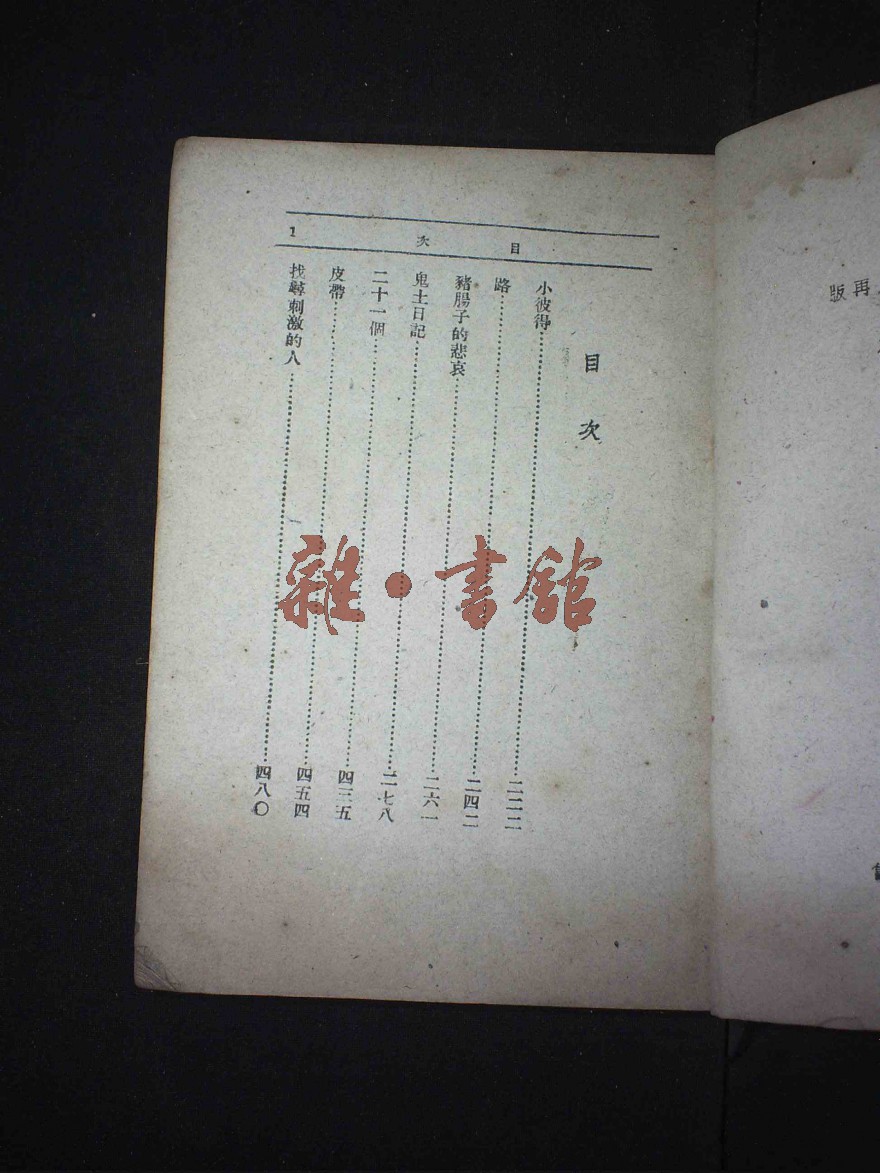 目　次　1
目次
小彼得……二二二
路……二四二
豬腸子的悲哀……二六一
鬼土日記……二七八
二十一個……四三五
皮帶……四五四
找尋刺激的人……四八〇
再版
雜·書館